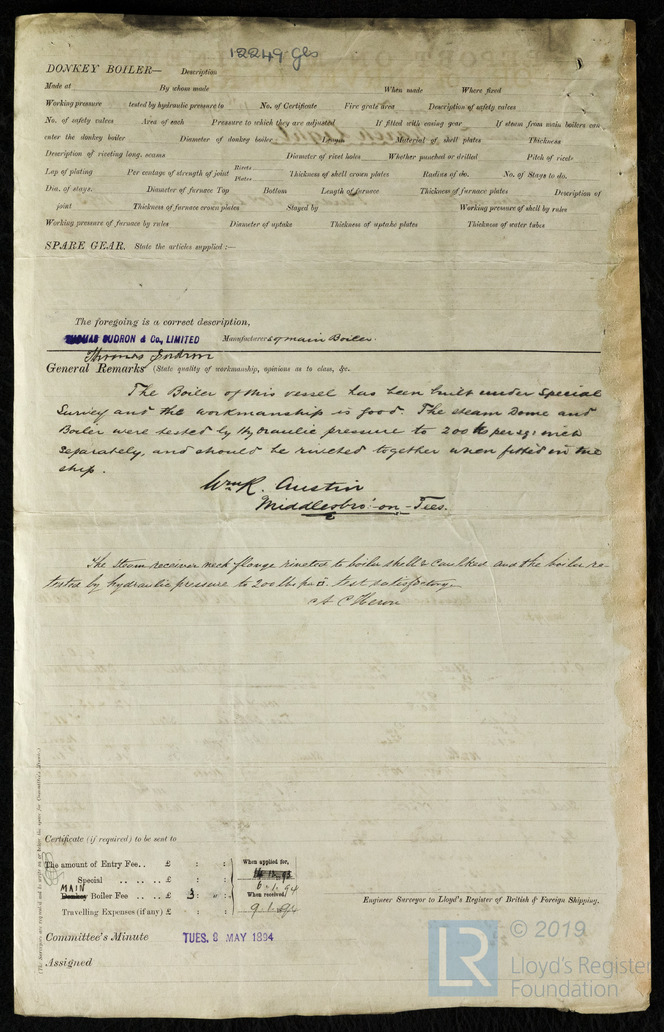 12249 Gls
DONKEY BOILER— Description
Made at By whom made When made Where fixed
Working pressure tested by hydraulic pressure to No. of Certificate Fire grate area Description of safety valves
No. of safety valves Area of each Pressure to which they are adjusted If fitted with easing gear If steam from main boilers can
enter the donkey boiler Diameter of donkey boiler Length Material of shell plates Thickness
Description of riveting long. seams Diameter of rivet holes Whether punched or drilled Pitch of rivets
Lap of plating Per centage of strength of joint Rivets Plates Thickness of shell crown plates Radius of do. No. of Stays to do.
Dia. of stays. Diameter of furnace Top Bottom Length of furnace Thickness of furnace plates Description of
joint Thickness of furnace crown plates Stayed by Working pressure of shell by rules
Working pressure of furnace by rules Diameter of uptake Thickness of uptake plates Thickness of water tubes
SPARE GEAR. State the articles supplied :—
The foregoing is a correct description,
THOMAS SUDRON & Co., LIMITED Manufacturers of main Boiler.
Thomas Sudron
General Remarks (State quality of workmanship, opinions as to class, &c.
The Boiler of this vessel has been built under Special
Survey and the workmanship is good. The steam Dome and
Boiler were tested by Hydraulic pressure to 200 lbs per sq: inch
separately, and should be riveted together when fitted in the
ship.
Wm R. Austin
Middlesbro'-on-Tees.
The Steam receiver neck flange riveted to boiler shell & caulked and the boiler re-
tested by hydraulic pressure to 200 lbs per □. Test satisfactory
A C Heron
Certificate (if required) to be sent to
The amount of Entry Fee.. £ : : When applied for,
Special .. .. .. £ : :
6.1.94
MAIN
Donkey Boiler Fee .. £ 3 : " : When received,
Travelling Expenses (if any) £ : : 9.1.94
Engineer Surveyor to Lloyd's Register of British & Foreign Shipping.
Committee's Minute TUES. 8 MAY 1894
Assigned
© 2019
LR
Lloyd's Register
Foundation